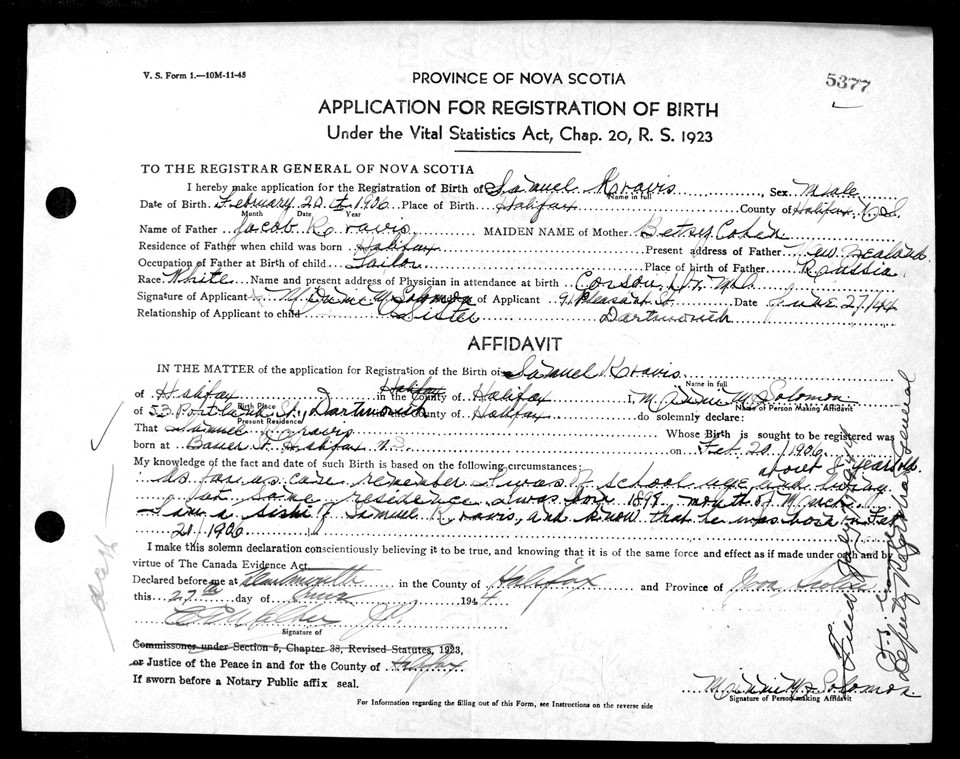 V. S. Form 1.—10M-11-43
PROVINCE OF NOVA SCOTIA
5377
APPLICATION FOR REGISTRATION OF BIRTH
Under the Vital Statistics Act, Chap. 20, R. S. 1923
TO THE REGISTRAR GENERAL OF NOVA SCOTIA
I hereby make application for the Registration of Birth of Samuel Kravis, Sex Male
Name in full
Date of Birth February 20 1906 Place of Birth Halifax County of Halifax N.S.
Month Date Year
Name of Father Jacob Kravis, MAIDEN NAME of Mother Betsy Cohen
Residence of Father when child was born Halifax Present address of Father New Zealand
Occupation of Father at Birth of child Tailor Place of birth of Father Russia
Race White Name and present address of Physician in attendance at birth Corson, Dr. M.D.
Signature of Applicant M Solomon of Applicant 91 Pleasant St. Date June 27/44
Relationship of Applicant to child Sister Dartmouth
AFFIDAVIT
IN THE MATTER of the application for Registration of the Birth of Samuel Kravis
Name in full
of Halifax Halifax in the County of Halifax I, M Solomon
Birth Place Name of Person Making Affidavit
of 53 Portland St., Dartmouth County of Halifax do solemnly declare:
Present Residence
That Samuel Kravis Whose Birth is sought to be registered was
born at Bauer St. Halifax N.S. on Feb. 20, 1906
My knowledge of the fact and date of such Birth is based on the following circumstances: about 8 years old
As far as can remember I was of school age and living
same residence I was born 1898 month of March
I am a sister of Samuel Kravis, and know that he was born on Feb
20 1906
I make this solemn declaration conscientiously believing it to be true, and knowing that it is of the same force and effect as if made under oath and by
virtue of The Canada Evidence Act
Declared before me at Dartmouth in the County of Halifax and Province of Nova Scotia
this 27th day of June 1944
J.P.
Signature of
Commissoner under Section 5, Chapter 38, Revised Statutes, 1923,
or Justice of the Peace in and for the County of Halifax
If sworn before a Notary Public affix seal.
M Solomon
Signature of Person making Affidavit
For Information regarding the filling out of this Form, see Instructions on the reverse side
Filed July
Deputy Registrar General